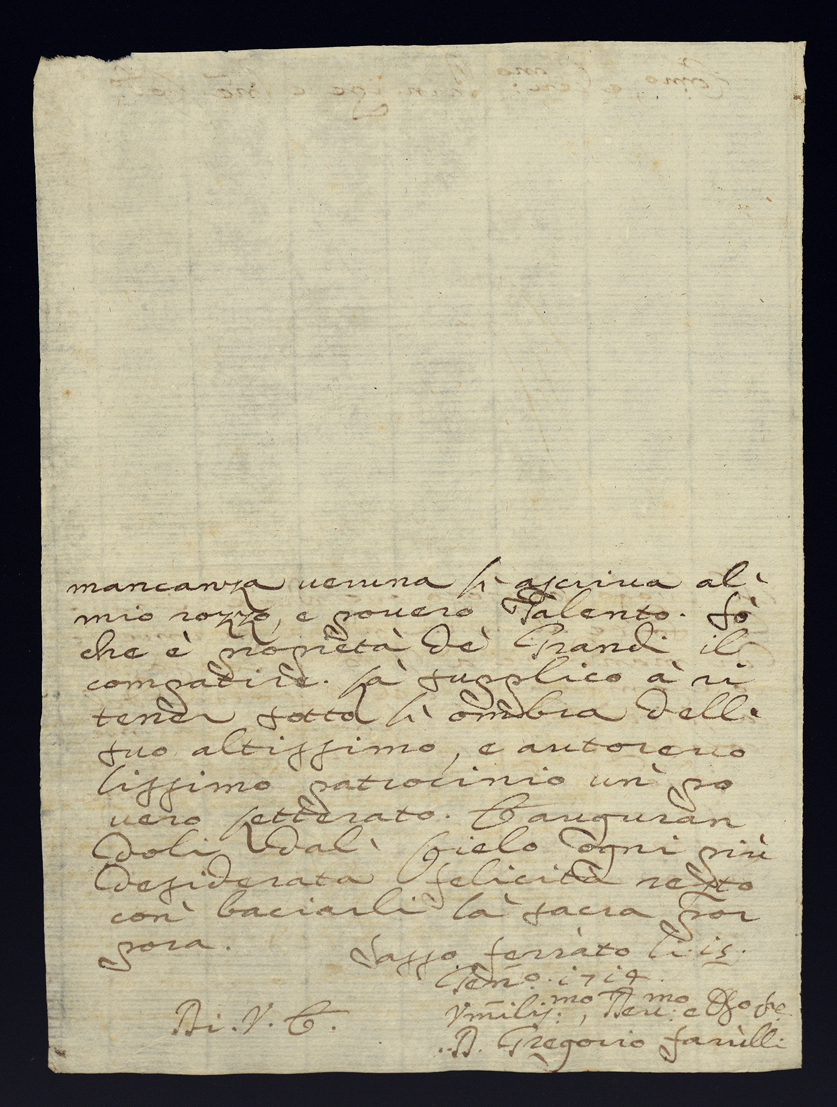 mancanza veruna si ascriva al'
mio rozzo, e povero Talento. Sò
che è propietà de' Grandi il
compatire. La supplico à ri
tener sotto l'ombra dell'
suo altissimo, e autorevo
lissimo patrocinio un' po
vero Letterato. E auguran
doli dal' Cielo ogni più
desiderata felicità resto
con' baciarli la sacra Por
pora.
Sasso ferrato li 15.
Gen.o 1714.
Di. V. E.
Vmilis.mo, Dev.mo e
D. Gregorio Farulli